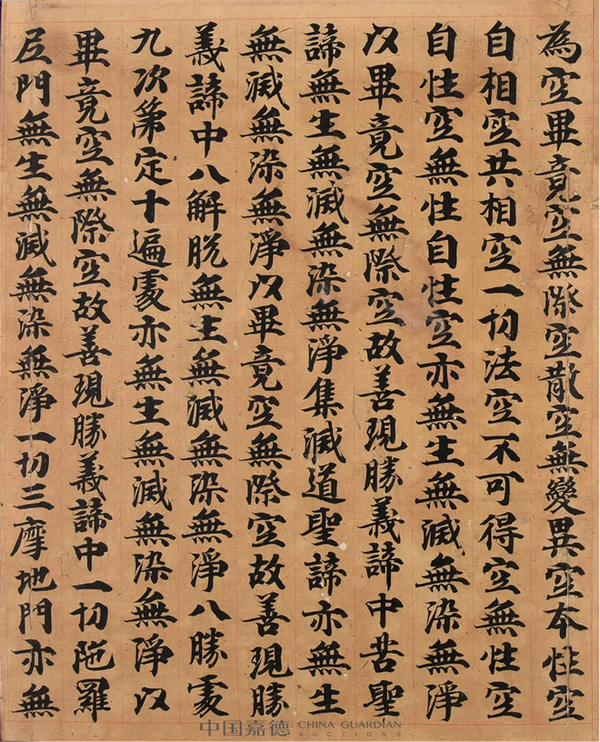 為空畢竟空無際空散空無變異空本性空
自相空共相空一切法空不可得空無性空
自性空無性自性空亦無生無滅無染無淨
以畢竟空無際空故善現勝義諦中苦聖
諦無生無滅無染無淨集滅道聖諦亦無生
無滅無染無淨以畢竟空無際空故善現勝
義諦中八解脫無生無滅無染無淨八勝處
九次第定十遍處亦無生無滅無染無淨以
畢竟空無際空故善現勝義諦中一切陀羅
尼門無生無滅無染無淨一切三摩地門亦無
中国嘉德 CHINA GUARDIAN
AUCTIONS